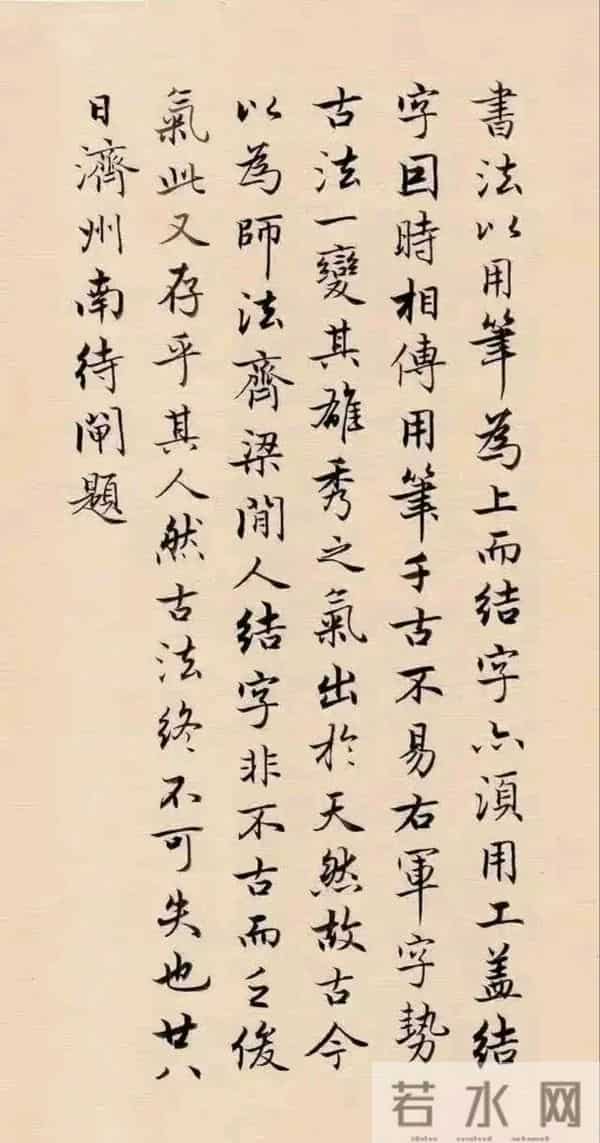 書法以用筆為上而結字亦須用工盖結
字因時相傳用筆千古不易右軍字勢
古法一變其雄秀之氣出於天然故古今
以為師法齊梁間人結字非不古而乏俊
氣此又存乎其人然古法終不可失也廿八
日濟州南待閘題
若水网